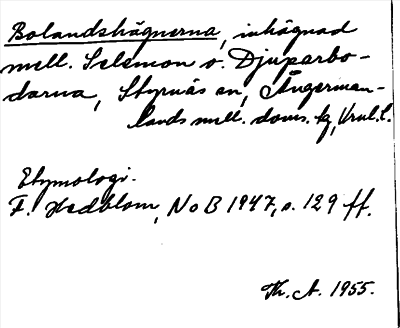 Bolandshägnerna, inhägnad
mell. Selemon o. Djuparbo-
darna, Styrnäs sn, Ångerman-
lands mell. doms. tg, Vnl. l.
Etymologi.
F. Hedblom, NoB 1947, s. 129 ff.
Th. A. 1955.